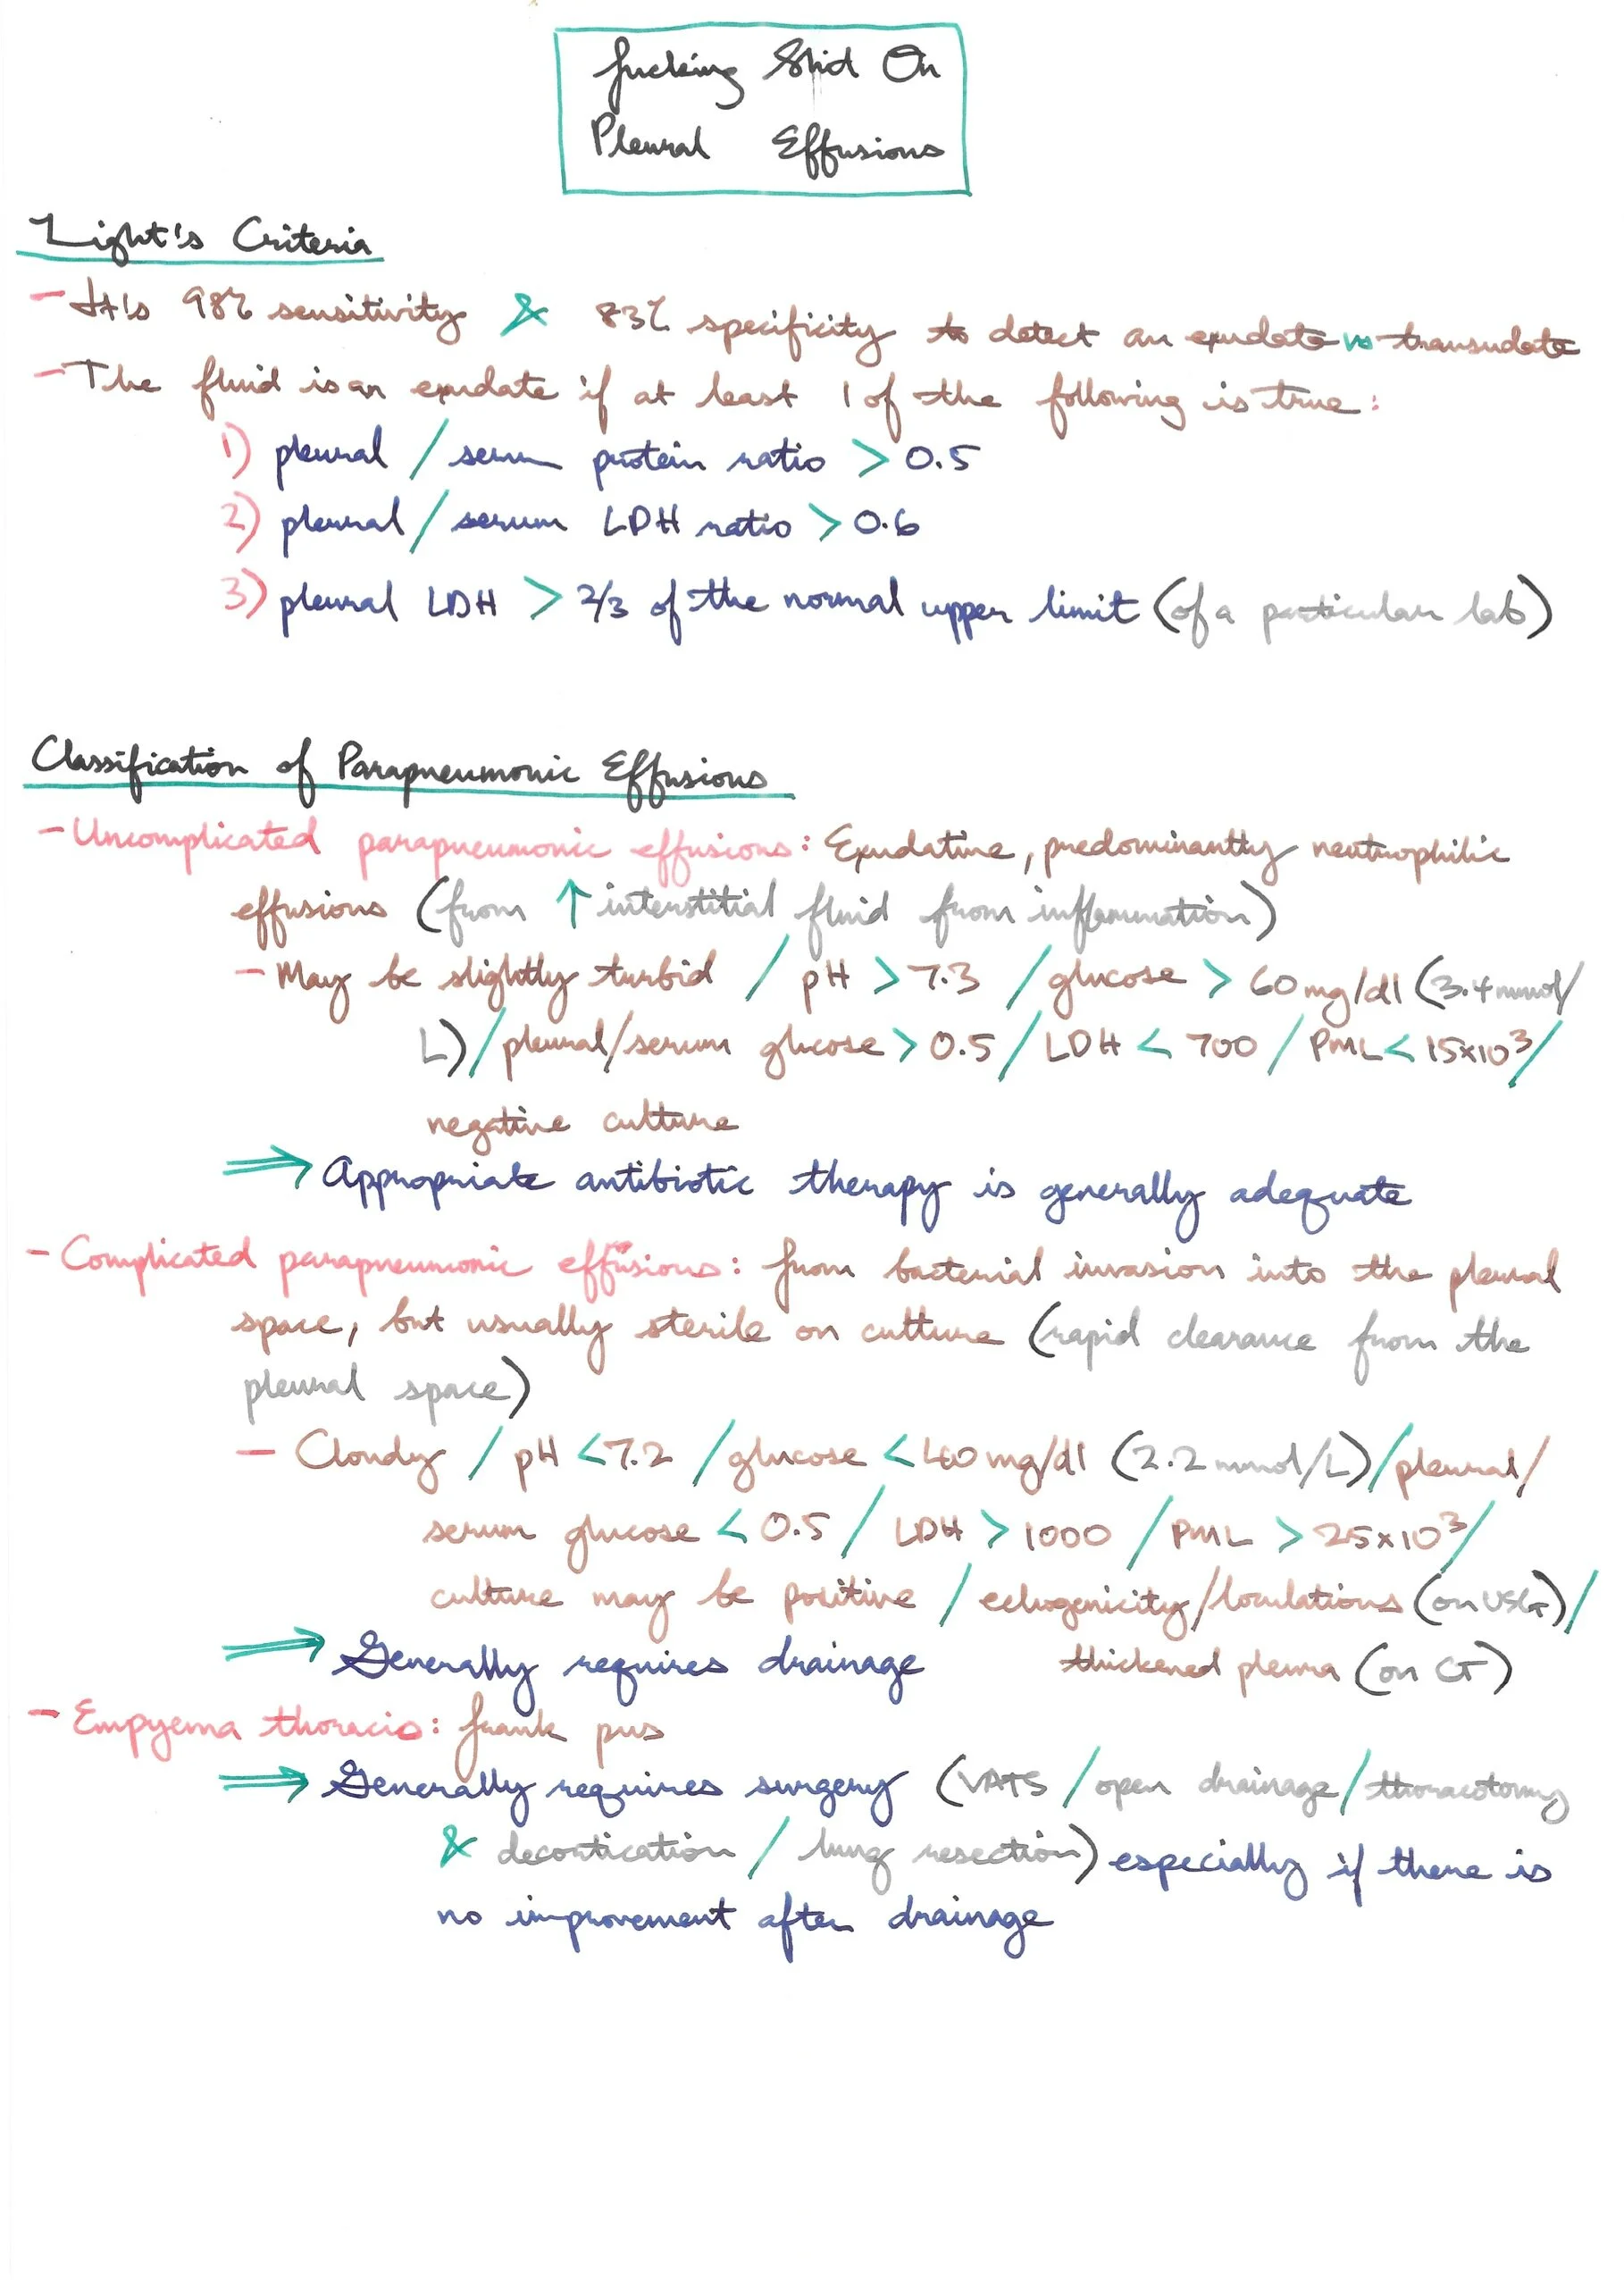 fucking Shit On
Pleural Effusions
Light's Criteria
- It's 98% sensitivity & 83% specificity to detect an exudate vs transudate
- The fluid is an exudate if at least 1 of the following is true:
1) pleural / serum protein ratio > 0.5
2) pleural / serum LDH ratio > 0.6
3) pleural LDH > 2/3 of the normal upper limit (of a particular lab)
Classification of Parapneumonic Effusions
- Uncomplicated parapneumonic effusions: Exudative, predominantly neutrophilic
effusions (from ↑ interstitial fluid from inflammation)
- May be slightly turbid / pH > 7.3 / glucose > 60 mg/dl (3.4 mmol/
L) / pleural/serum glucose > 0.5 / LDH < 700 / PML < 15x10³ /
negative culture
⇒ Appropriate antibiotic therapy is generally adequate
- Complicated parapneumonic effusions: from bacterial invasion into the pleural
space, but usually sterile on culture (rapid clearance from the
pleural space)
- Cloudy / pH < 7.2 / glucose < 40 mg/dl (2.2 mmol/L) / pleural/
serum glucose < 0.5 / LDH > 1000 / PML > 25x10³ /
culture may be positive / echogenicity/loculations (on USG) /
⇒ Generally requires drainage thickened pleura (on CT)
- Empyema thoracis: frank pus
⇒ Generally requires surgery (VATS / open drainage / thoracotomy
& decortication / lung resection) especially if there is
no improvement after drainage